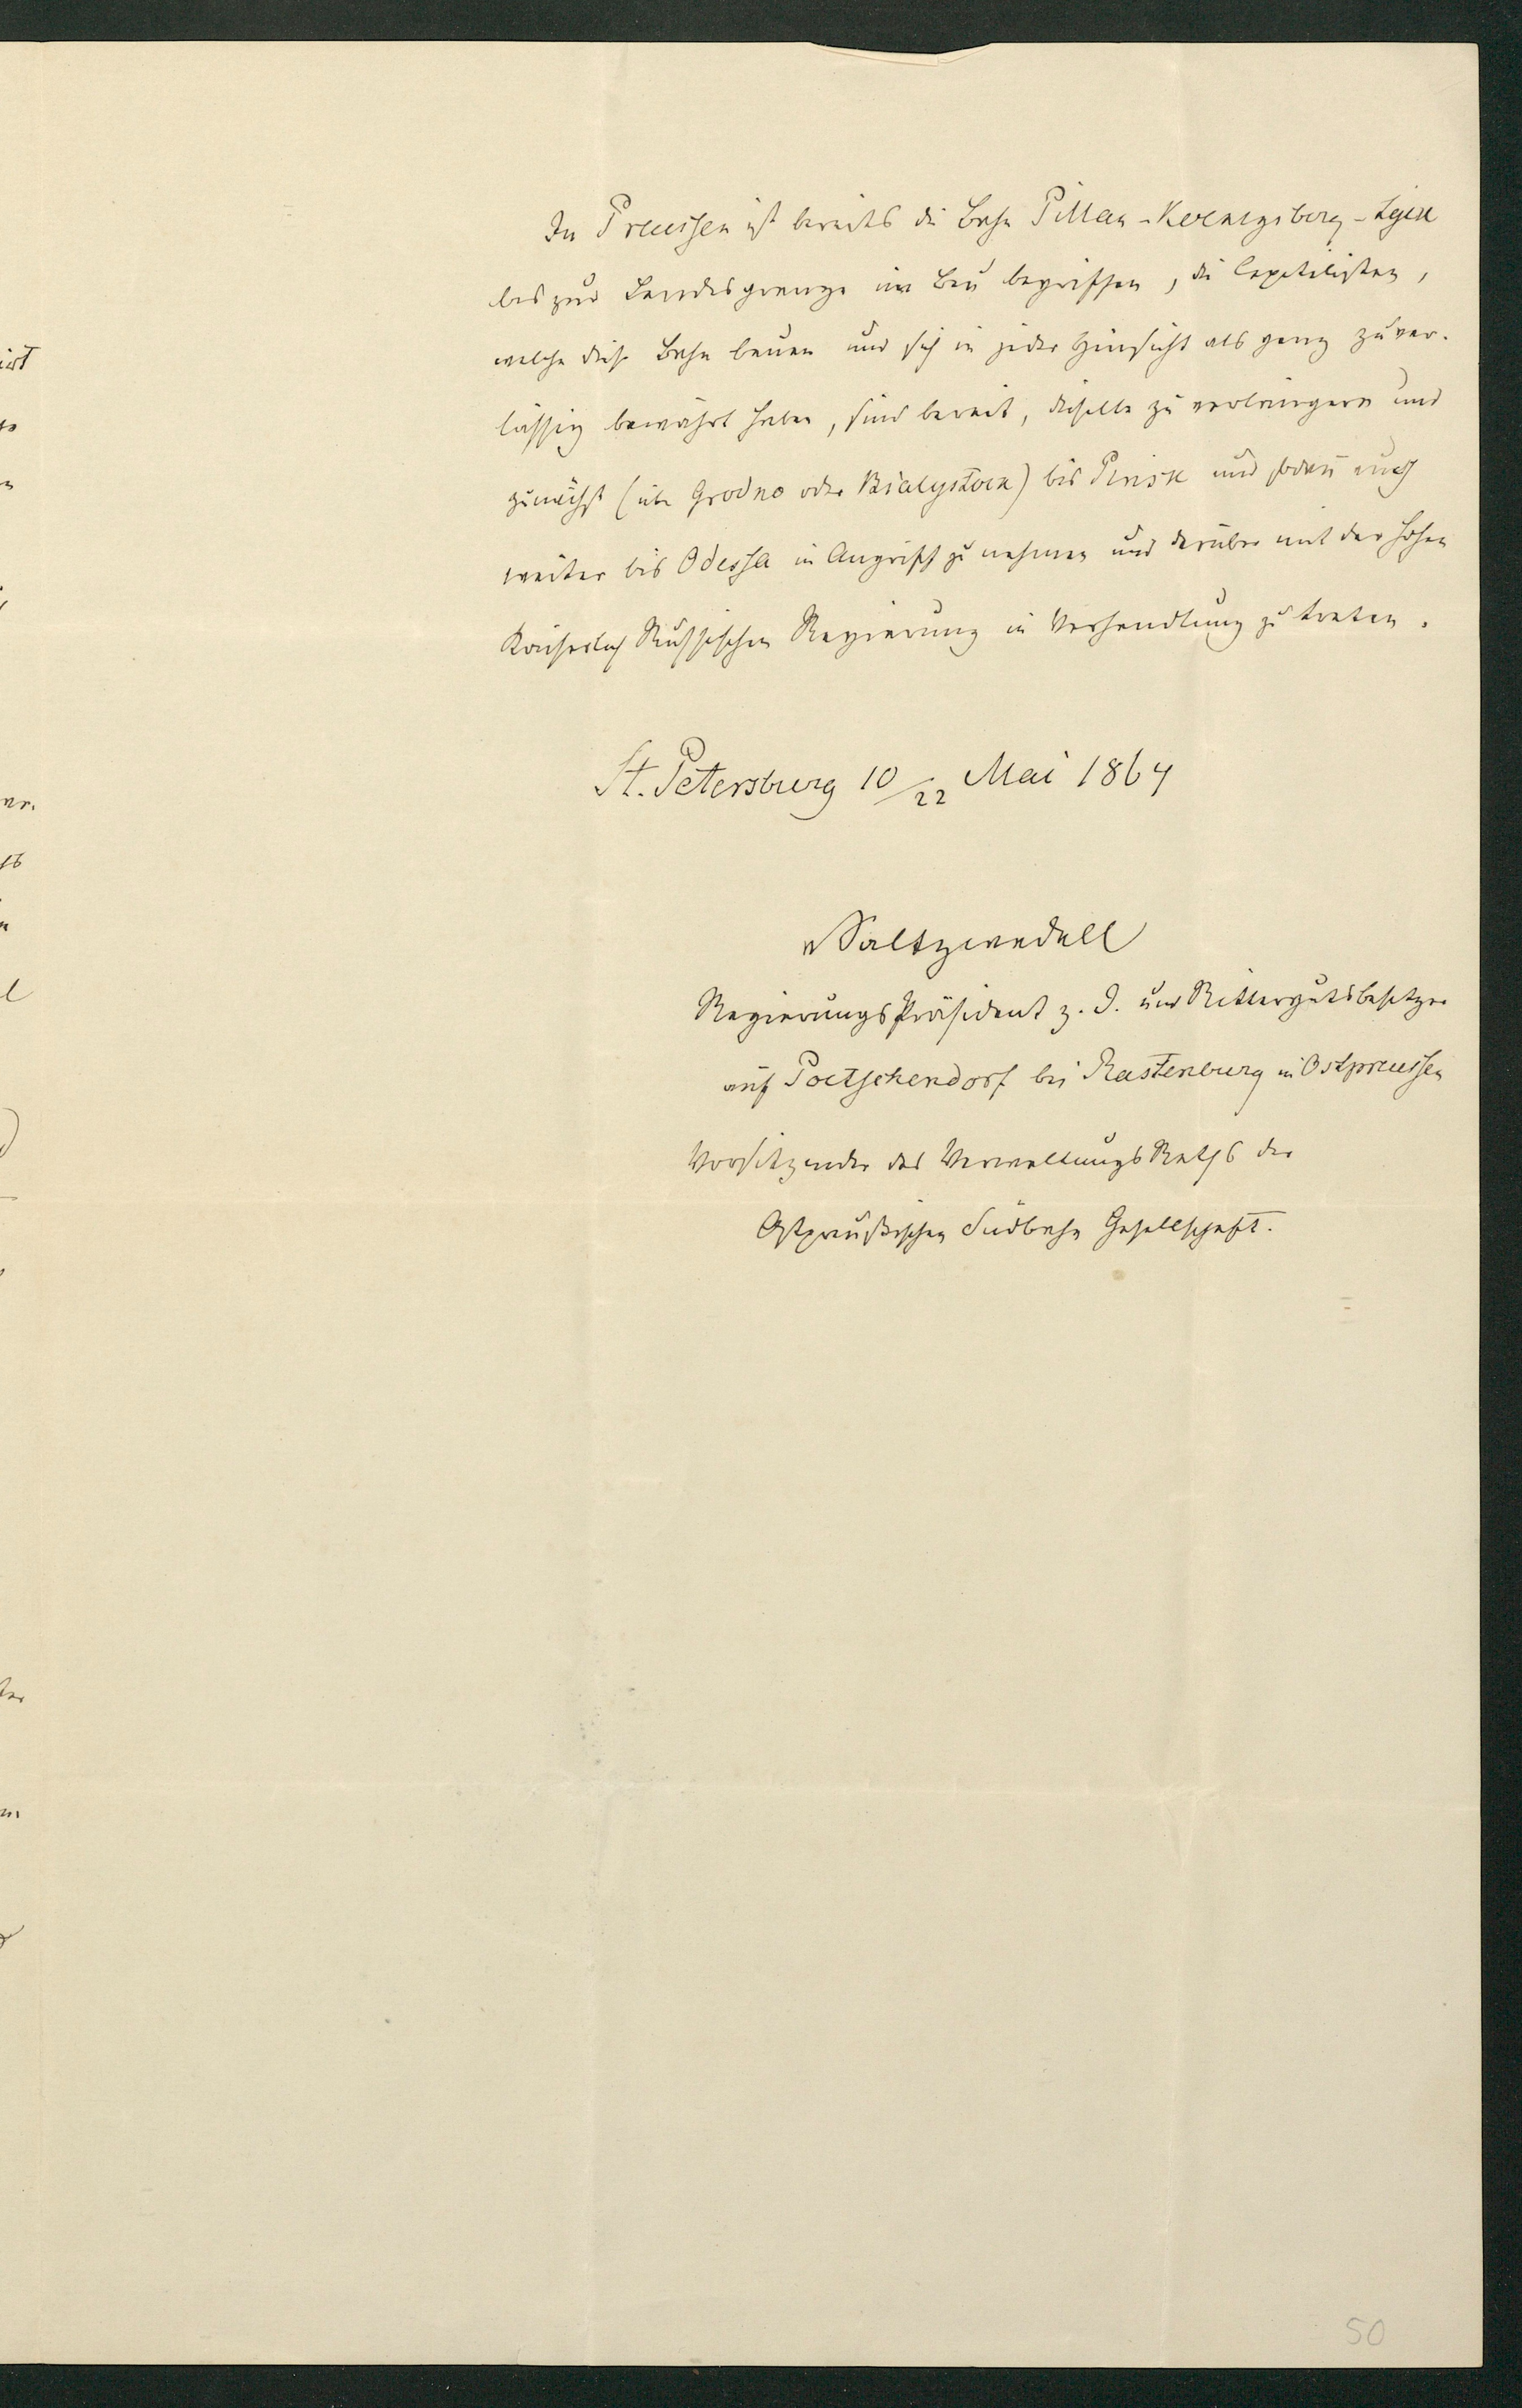 In Preussen ist bereits die Bahn Pillau-Koenigsberg-Lyck
bis zur Landesgrenze im Bau begriffen, die Capitalisten,
welche diese Bahn bauen und sich in jeder Hinsicht als ganz zuver-
lässig bewährt haben, sind bereit, dieselbe zu verlängern und
zunächst (über Grodno oder Bialystock) bis Pinsk und sodann auch
weiter bis Odessa in Angriff zu nehmen und darüber mit der hohen
Kaiserlich Russischen Regierung in Verhandlung zu treten.
St. Petersburg 10/22 Mai 1864
v Saltzwedell
RegierungsPräsident z. D. und Rittergutsbesitzer
auf Poetschendorf bei Rastenburg in Ostpreussen
Vorsitzender des VerwaltungsRaths der
Ostpreußischen Südbahn Gesellschaft.
50